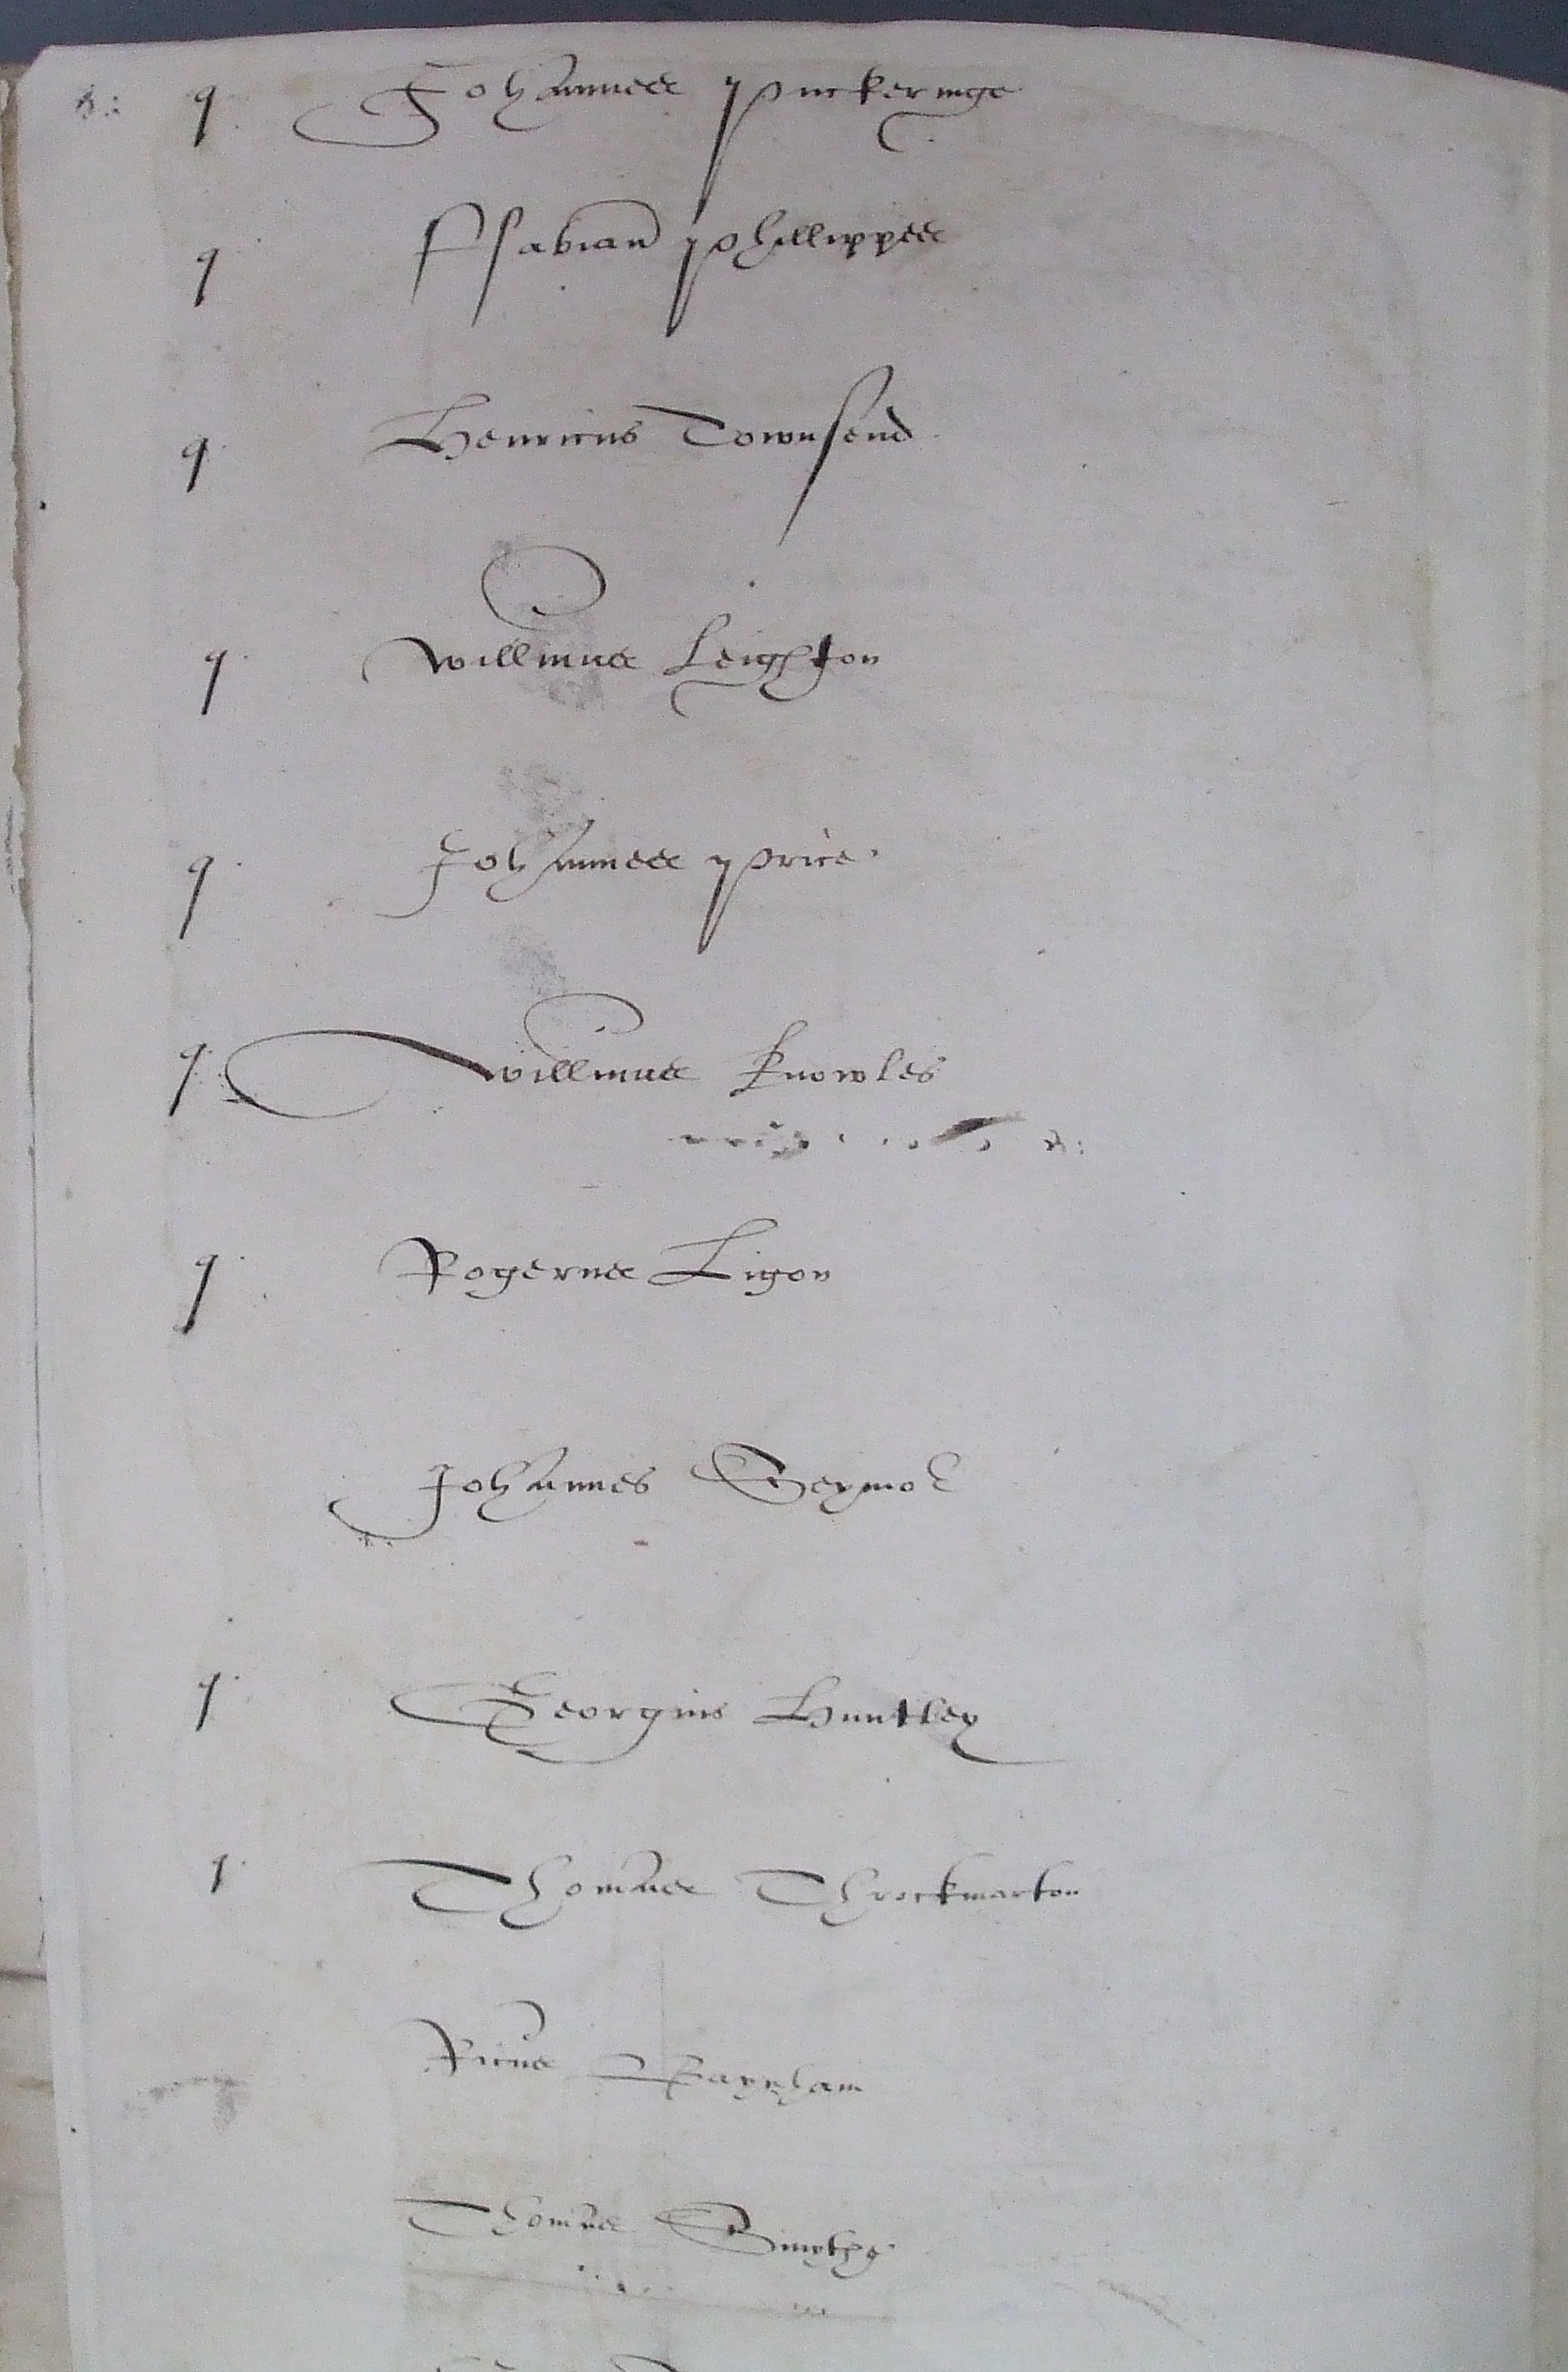 q Johannes Puckeringe
q ffabian Phillippes
q Henricus Townsend
q Willmus Leighton
q Johannes Price
q Willmus Knowles
q Rogerus Ligon
Johannes Seymor
q Georgius Huntley
q Thomas Throckmarton
Ricus
Thomas Smythe